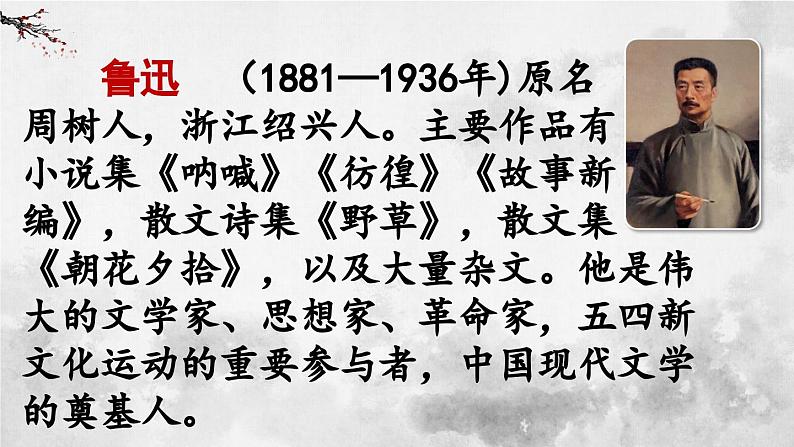 鲁迅 (1881—1936年)原名
周树人，浙江绍兴人。主要作品有
小说集《呐喊》《彷徨》《故事新
编》，散文诗集《野草》，散文集
《朝花夕拾》，以及大量杂文。他是伟
大的文学家、思想家、革命家，五四新
文化运动的重要参与者，中国现代文学
的奠基人。